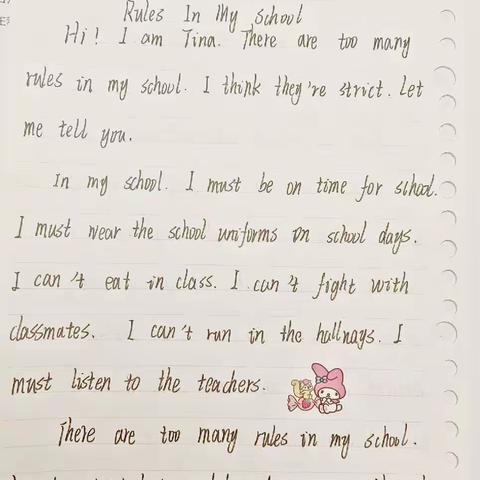 Rules In My school
Hi! I am Tina. There are too many
rules in my school. I think they're strict. Let
me tell you.
In my school. I must be on time for school.
I must wear the school uniforms on school days.
I can't eat in class. I can't fight with
classmates. I can't run in the hallways. I
must listen to the teachers.
There are too many rules in my school.